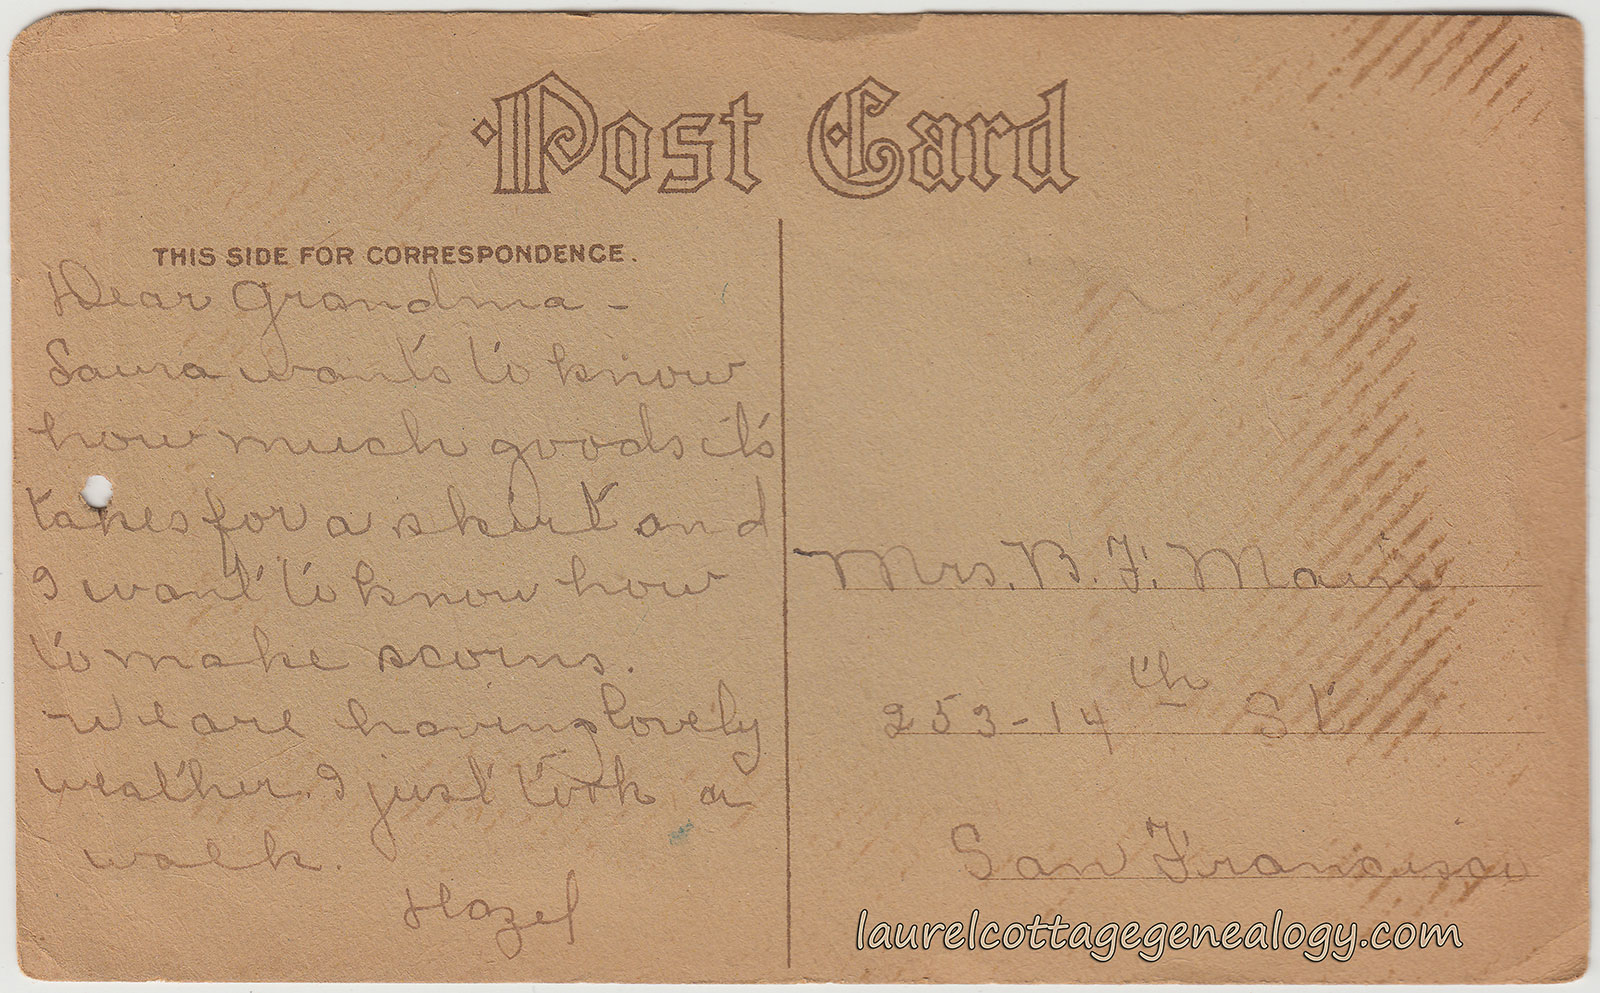 Post Card
THIS SIDE FOR CORRESPONDENCE.
Dear Grandma -
Laura wants to know
how much goods its
takes for a skirt and
I want to know how
to make scorns.
We are having lovely
weather. I just took a
walk.
Hazel
Mrs. B. F. Main
253-14th St
San Francisco
laurelcottagegenealogy.com